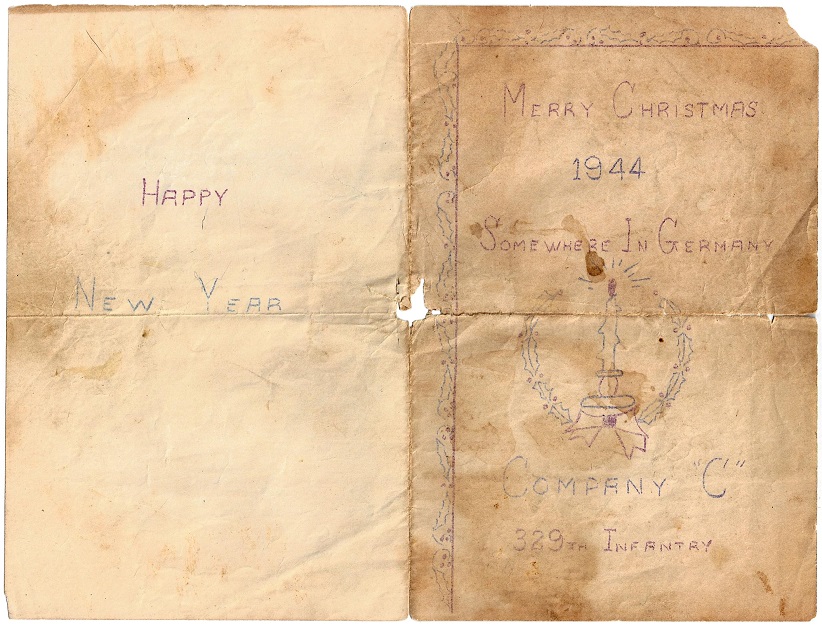 Happy
New Year
Merry Christmas
1944
Somewhere In Germany
Company "C"
329th Infantry